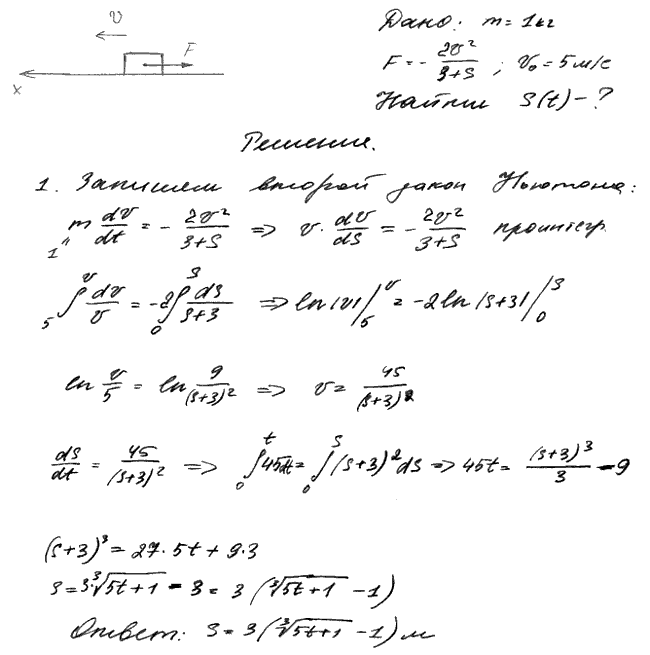 v
F
x
Дано: m = 1 кг
F = - 2v²/(3+S) ; v₀ = 5 м/с
Найти S(t) - ?
Решение.
1. Запишем второй закон Ньютона:
m dv/dt = - 2v²/(3+S) => v · dv/dS = - 2v²/(3+S) проинтегр.
1"
∫₅^v dv/v = -2 ∫₀^S dS/(S+3) => ln|v| |₅^v = -2 ln|S+3| |₀^S
ln v/5 = ln 9/(S+3)² => v = 45/(S+3)²
dS/dt = 45/(S+3)² => ∫₀^t 45dt = ∫₀^S (S+3)² dS => 45t = (S+3)³/3 - 9
(S+3)³ = 27 · 5t + 9·3
S = 3·∛(5t+1) - 3 = 3(∛(5t+1) - 1)
Ответ: S = 3(∛(5t+1) - 1) м